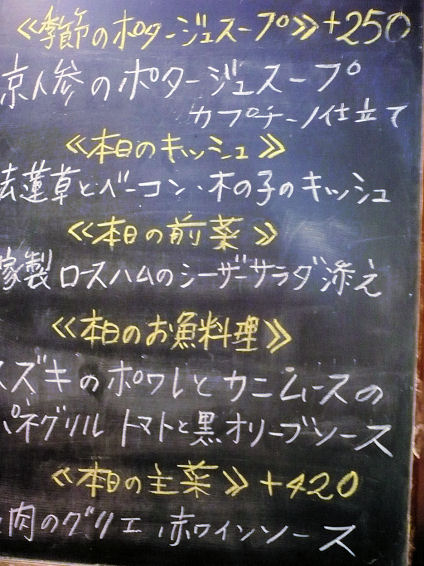 ≪季節のポタージュスープ≫+250
京人参のポタージュスープ
カプチーノ仕立て
≪本日のキッシュ≫
法蓮草とベーコン、木の子のキッシュ
≪本日の前菜≫
家製ロースハムのシーザーサラダ添え
≪本日のお魚料理≫
スズキのポワレとカニムースの
パネグリル トマトと黒オリーブソース
≪本日の主菜≫+420
肉のグリエ、赤ワインソース